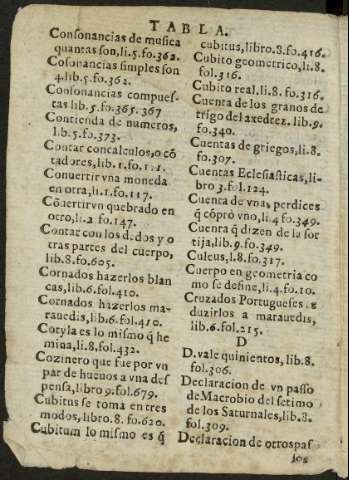 TABLA.
Consonancias de musica
quantas son,li.5.fo.362.
Cosonancias simples son
4.lib.5.fo.362.
Consonancias compues-
tas lib.5.fo.365.367
Contienda de numeros,
lib.5.fo.373.
Contar concalculos,o cō
tadores,lib.1.fo.
Conuertir vna moneda
en otra,li.1.fo.117.
Cōuertirvn quebrado en
otro,li.2 fo.147.
Contar con los d.dos y o
tras partes del cuerpo,
lib.8.fo.605.
Cornados hazerlos blan
cas,lib.6.fol.410.
Cornados hazerlos ma-
rauedis,lib.6.fol.410.
Cotyla es lo mismo q̄ he
mina,li.8.fol.432.
Cozinero que fue por vn
par de hueuos a vna des
pensa,libro 9.fol.679.
Cubitus se toma en tres
modos, libro.8. fo.620.
Cubitum lo mismo es q̄
cubitus,libro.8.fo.416.
Cubito geometrico,li.8.
fol.316.
Cubito real.li.8.fo.316.
Cuenta de los granos de
trigo del axedrez. lib.9.
fo.340.
Cuentas de griegos,li.8.
fo.307.
Cuentas Eclesiasticas,li-
bro 3.fol.124.
Cuenta de vnas perdices
q̄ cōpró vno,li.4 fo.349.
Cuenta q̄ dizen de la sor
tija,lib.9.fo.349.
Culeus,l.8.fo.317.
Cuerpo en geometria co
mo se define,li.4.fo.10.
Cruzados Portugueses re
duzirlos a marauedis,
lib.6.fol.215.
D
D.vale quinientos, lib.8.
fol.306.
Declaracion de vn passo
de Macrobio del setimo
de los Saturnales,lib.8.
fol.309.
Declaracion de otrospas
sos